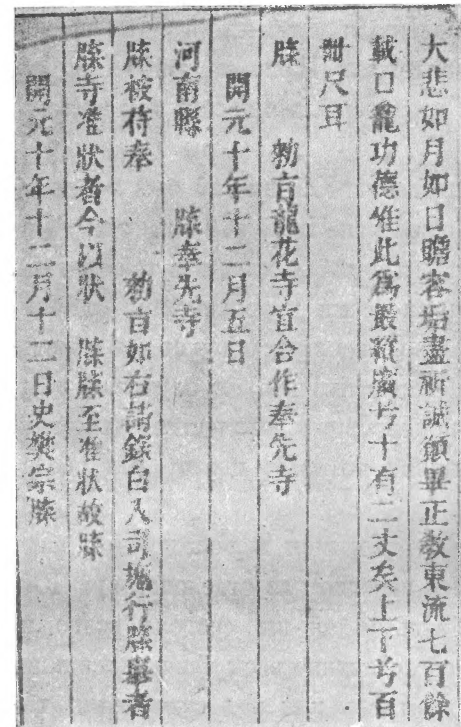 大悲如月如日瞻容垢盡祈誠願畢正教東流七百餘
載口龕功德唯此為最縱廣兮十有二丈矣上下兮百
卌尺耳
牒　勅旨龍花寺宜合作奉先寺
開元十年十二月五日
河南縣　牒奉先寺
牒被符奉　勅旨如右請錄白入司施行牒舉者
牒寺准狀者今以狀　牒牒至准狀故牒
開元十年十二月十二日史樊宗牒